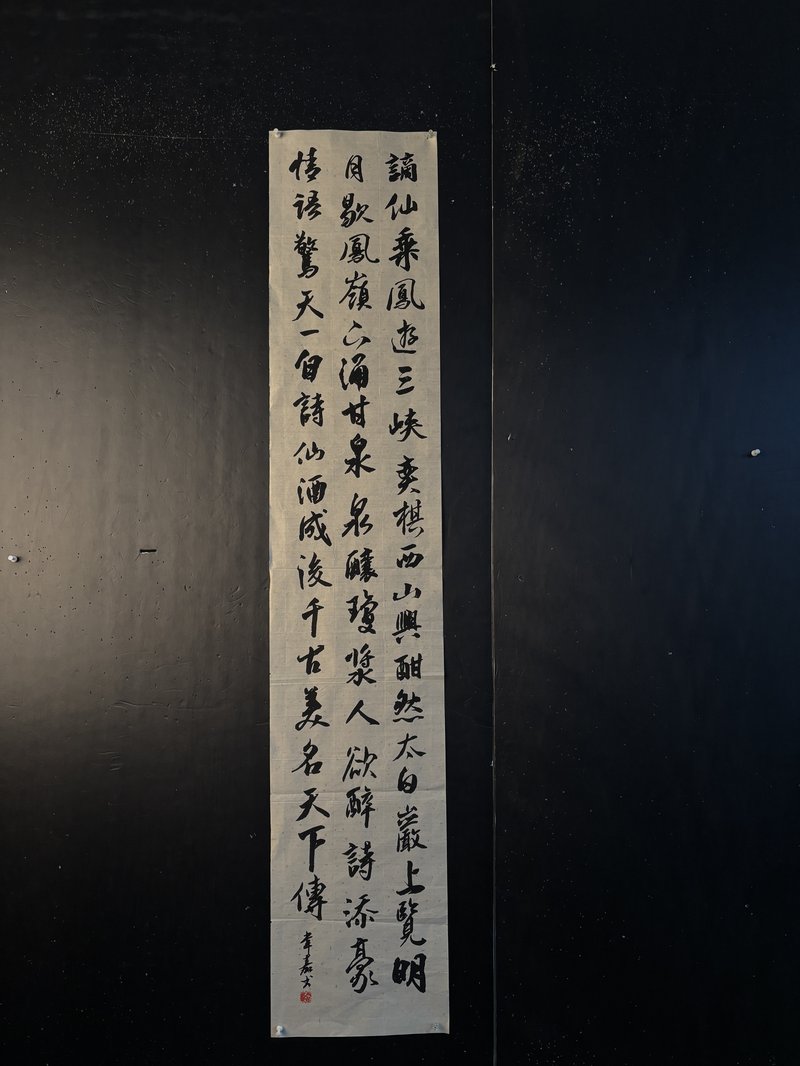 謫仙乘鳳遊三峽奕棋西山興酣然太白巖上覽明
月歇鳳嶺下涌甘泉泉釀瓊漿人欲醉詩添豪
情語驚天一自詩仙酒成後千古美名天下傳
韋嘉書